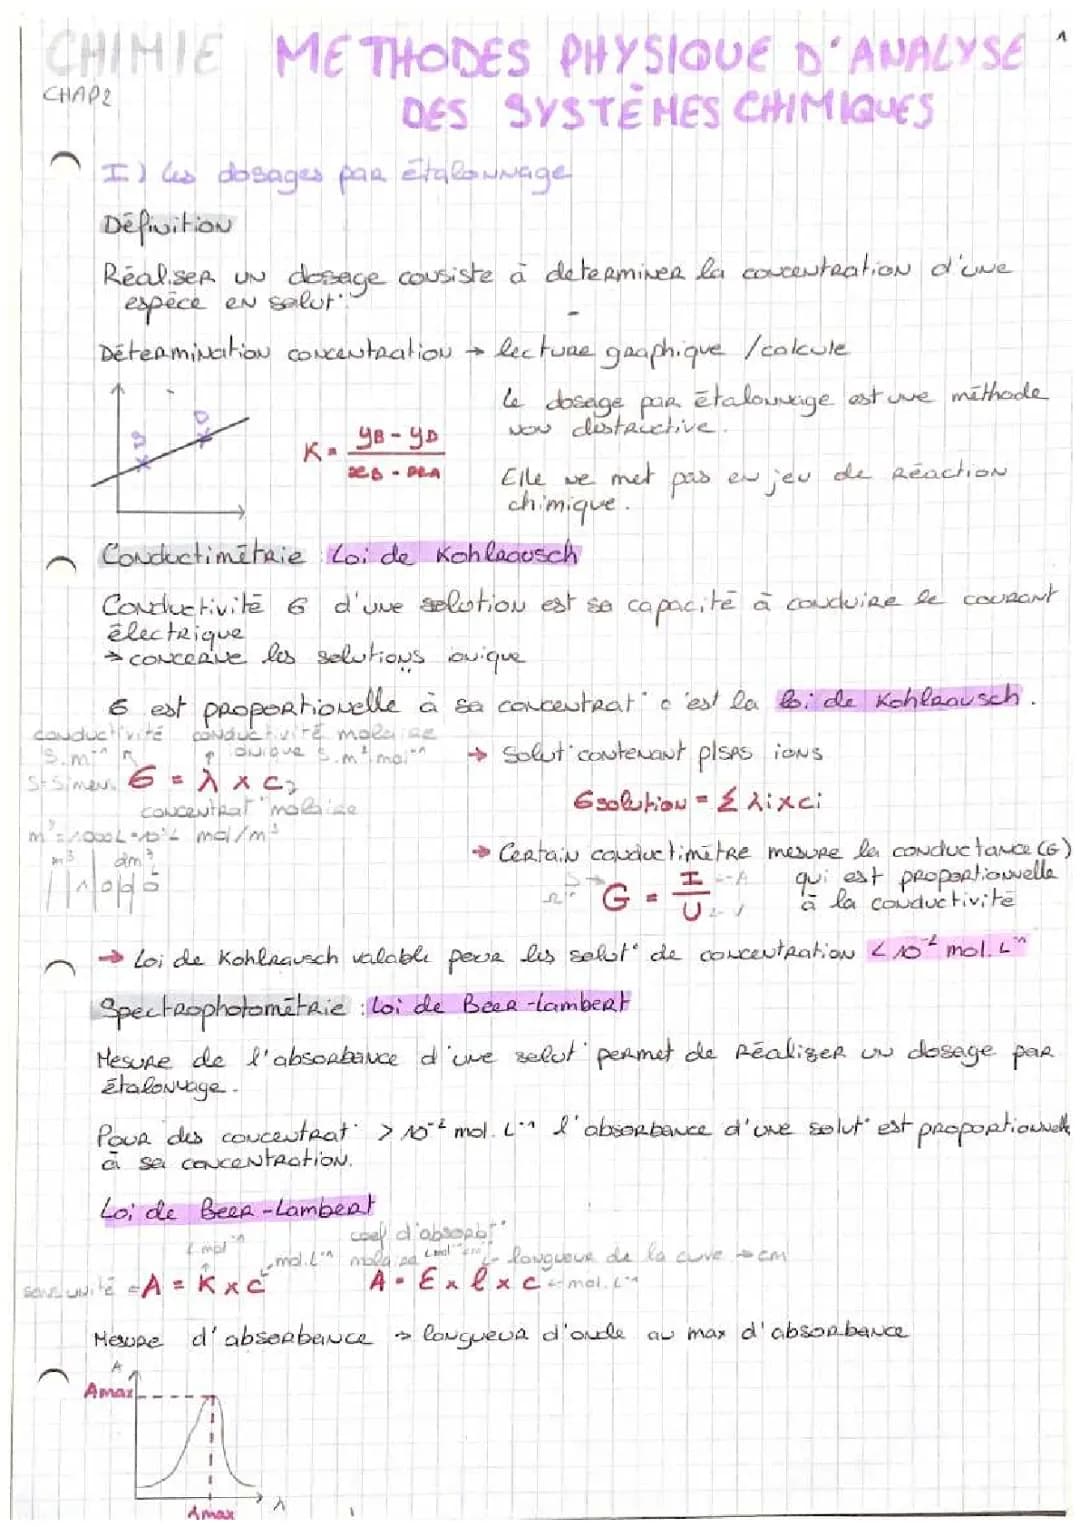 CHIMIE METHODES PHYSIQUE D'ANALYSE 1
CHAP2
DES SYSTÈMES CHIMIQUES
I) Les dosages par étalonnage
Définition
Réaliser un dosage consiste à determiner la concentration d'une
espèce en solut°.
Détermination concentration → lecture graphique / calcule
Le dosage par étalonnage est une méthode
non destructive.
K = yB - yD / xB - xA
Elle ne met pas en jeu de réaction
chimique.
Conductimétrie : Loi de Kohlraousch
Conductivité σ d'une solution est sa capacité à conduire le courant
électrique
→ concerne les solutions ionique
σ est proportionelle à sa concentrat° c'est la loi de Kohlraousch.
conductivité conductivité molaire
S.m⁻¹ ionique S.m².mol⁻¹
→ solut° contenant plsrs ions
S=Simens σ = λ x c
concentrat° molaire
σsolution = Σ λi x ci
m³ = 1000L = 10³L mol/m³
m³ | dm³
1 0 0 0
→ Certain conductimètre mesure la conductance (G)
qui est proportionnelle
à la conductivité
G = I / U
→ Loi de Kohlrausch valable pour les solut° de concentration < 10⁻² mol.L⁻¹
Spectrophotométrie : Loi de Beer-Lambert
Mesure de l'absorbance d'une solut° permet de réaliser un dosage par
étalonnage.
Pour des concentrat° > 10⁻² mol.L⁻¹ l'absorbance d'une solut° est proportionnelle
à sa concentration.
Loi de Beer-Lambert
L mol⁻¹ coef d'absorbt°
mol.L⁻¹ molaire L mol⁻¹ cm⁻¹ longueur de la cuve → cm
sans unité ← A = K x c A = ε x l x c ← mol.L⁻¹
Mesure d'absorbance → longueur d'onde au max d'absorbance
A
Amax
λmax λ